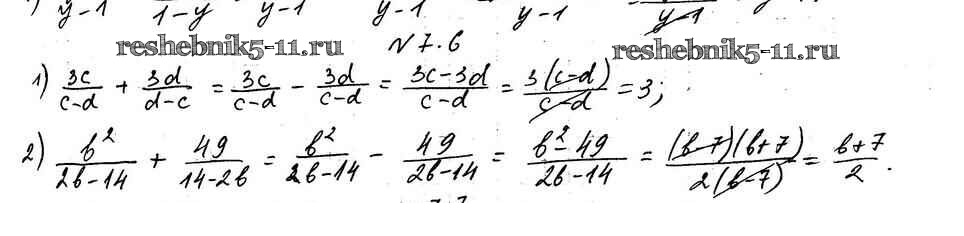 y-1 1-y y-1 y-1 y-1 y-1
reshebnik5-11.ru №7.6 reshebnik5-11.ru
1) 3c/(c-d) + 3d/(d-c) = 3c/(c-d) - 3d/(c-d) = (3c-3d)/(c-d) = 3(c-d)/(c-d) = 3;
2) b²/(2b-14) + 49/(14-2b) = b²/(2b-14) - 49/(2b-14) = (b²-49)/(2b-14) = (b-7)(b+7)/2(b-7) = (b+7)/2.